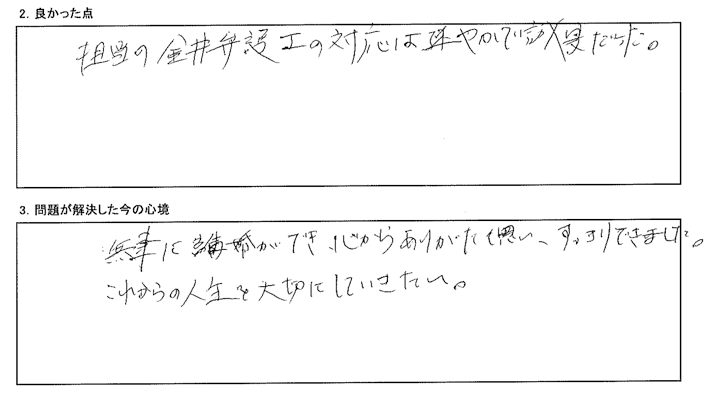 2. 良かった点
担当の金井弁護士の対応は速やかで誠実だった。
3. 問題が解決した今の心境
無事に離婚ができ、心からありがたく思い、すっきりできました。
これからの人生を大切にしていきたい。